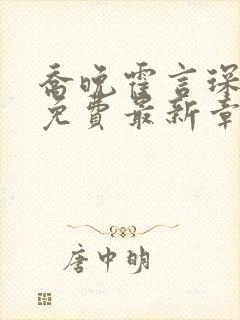 乔晚霍言琛
免費最新章
唐中明